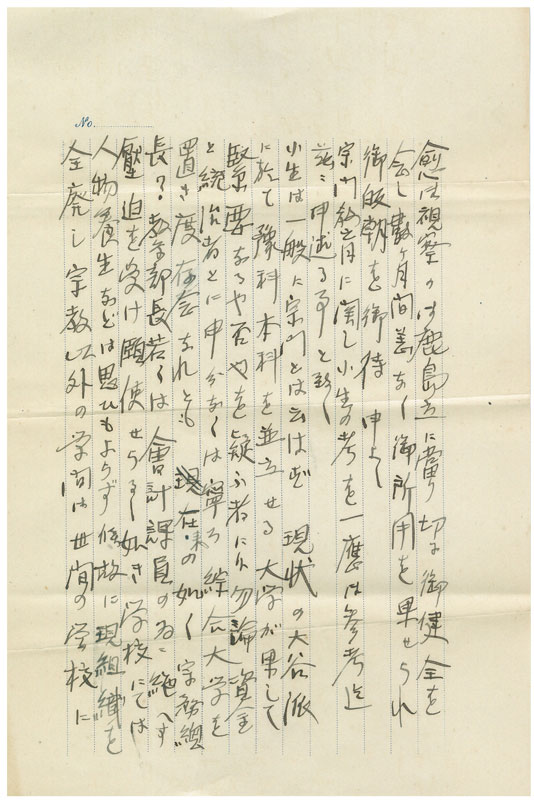 No.
愈は視察の は鹿島立に當り切に御健全を
念じ數ヶ月間恙なく御所用を果せられ
御帰朝を御待申上候
宗門教育に関し小生の考を一應は参考迄
茲に申述る事と致し
小生は一般に宗門とは云はず現状の大谷派
に於て豫科本科を並立せる大学が果して
緊要なるや否やを疑ふ者に候勿論資金
と統治者とに申分なくは寧ろ綜合大学を
置き度存念なれとも現在来の如く宗務總
長?教学部長若くは會計課員の為に絶へず
壓迫を受け頤使せらるゝ如き学校にては
人物養生などは思ひもよらず候故に現組織を
全廃し宗教以外の学問は世間の学校に